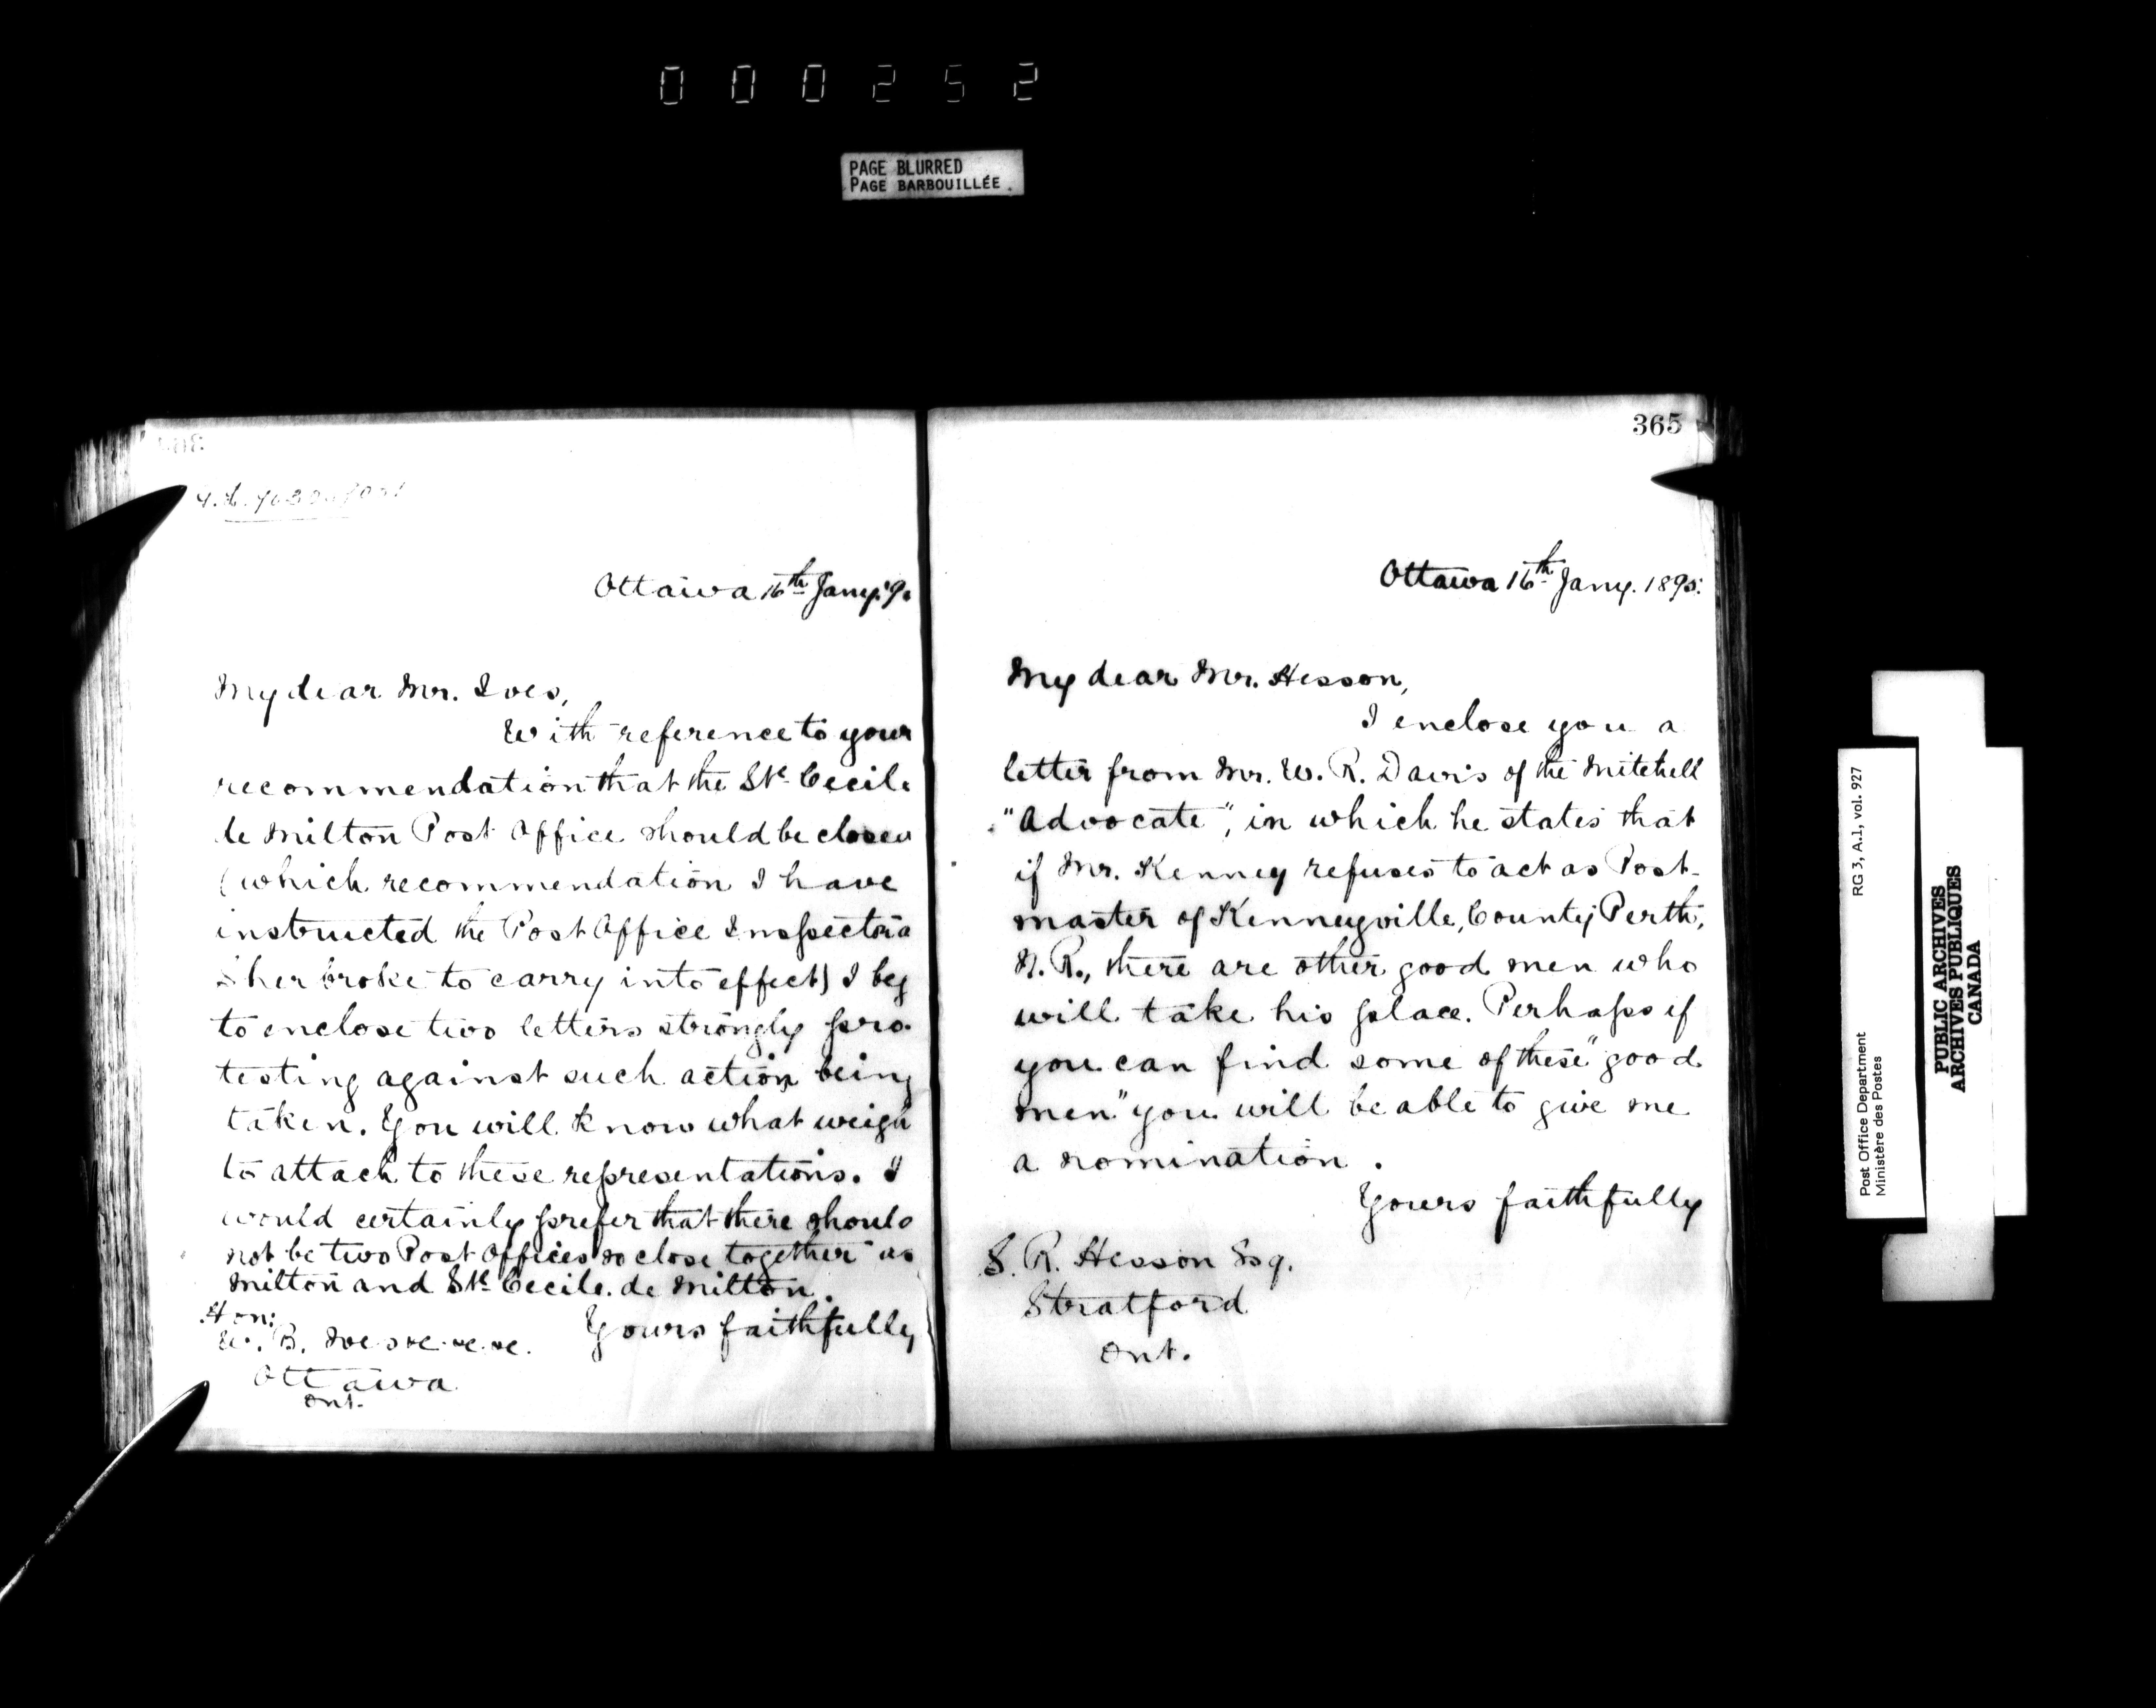 000252
PAGE BLURRED
PAGE BARBOUILLÉE.
Ottawa 16th Jany. '9
My dear Mr. Ives,
With reference to your
recommendation that the Ste Cecile
de Milton Post Office should be closed
(which recommendation I have
instructed the Post Office Inspector a
Sherbroke to carry into effect) I beg
to enclose two letters strongly pro-
testing against such action being
taken. You will know what weigh
to attach to these representations. I
would certainly prefer that there should
not be two Post Offices so close together as
Milton and Ste Cecile de Milton.
Yours faithfully
Hon:
W. B. Ives &c. &c. &c.
Ottawa
Ont.
365
Ottawa 16th Jany. 1895.
My dear Mr. Hesson,
I enclose you a
letter from Mr. W. R. Davis of the Mitchell
"Advocate", in which he states that
if Mr. Kenney refuses to act as Post-
master of Kenneyville, County Perth,
N. R., there are other good men who
will take his place. Perhaps if
you can find some of these "good
men" you will be able to give me
a nomination.
Yours faithfully
S. R. Hesson Esq.
Stratford
Ont.
Post Office Department
Ministère des Postes
RG 3, A.1, vol. 927
PUBLIC ARCHIVES
ARCHIVES PUBLIQUES
CANADA